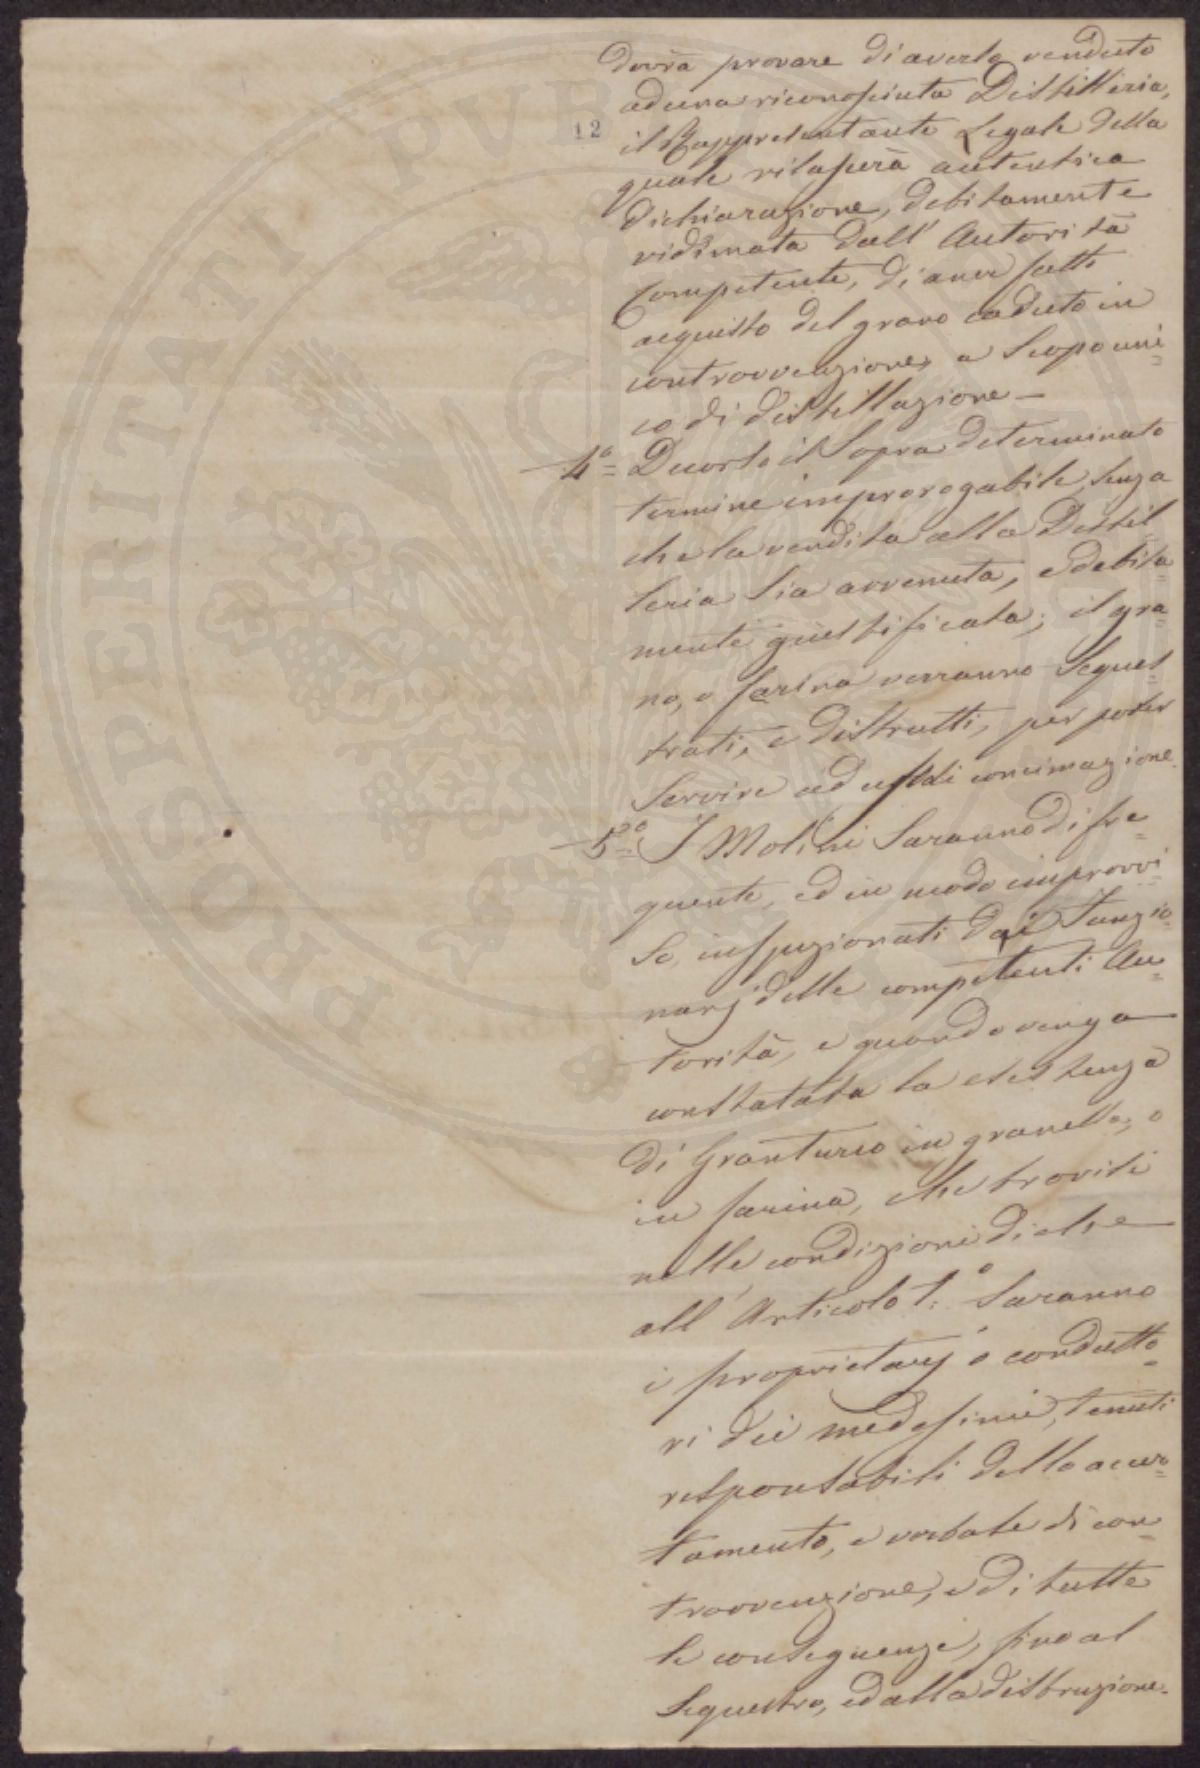 dovrà provare di averlo venduto
ad una riconosciuta Distilleria,
12
il Rappresentante Legale della
quale rilascerà autentica
dichiarazione, debitamente
vidimata dall' Autorità
Competente, di aver fatto
acquisto del grano caduto in
controvvenzione, a Scopo uni=
co di distillazione —
4°= Decorso il Sopra determinato
termine improrogabile, senza
che la vendita alla Distil
leria Sia avvenuta, e debita=
mente giustificata; il gra=
no, o farina verranno Seques=
trati, e distrutti, per poter
Servire ad uso di concimazione.
5°= I Molini Saranno di fre=
quente, ed in modo improvvi=
So, inspezionati dai Funzio=
narj delle competenti Au=
torità, e quando venga
constatata la esistenza
di Granturco in granello, o
in farina, che trovisi
nelle condizioni di che
all' Articolo 1.° Saranno
i proprietarj o condutto=
ri dei medesimi, tenuti
responsabili dello accer=
tamento, e verbale di con=
trovvenzione, e di tutte
le conseguenze, fino al
Sequestro, ed alla distruzione.
PROSPERITATI PVB